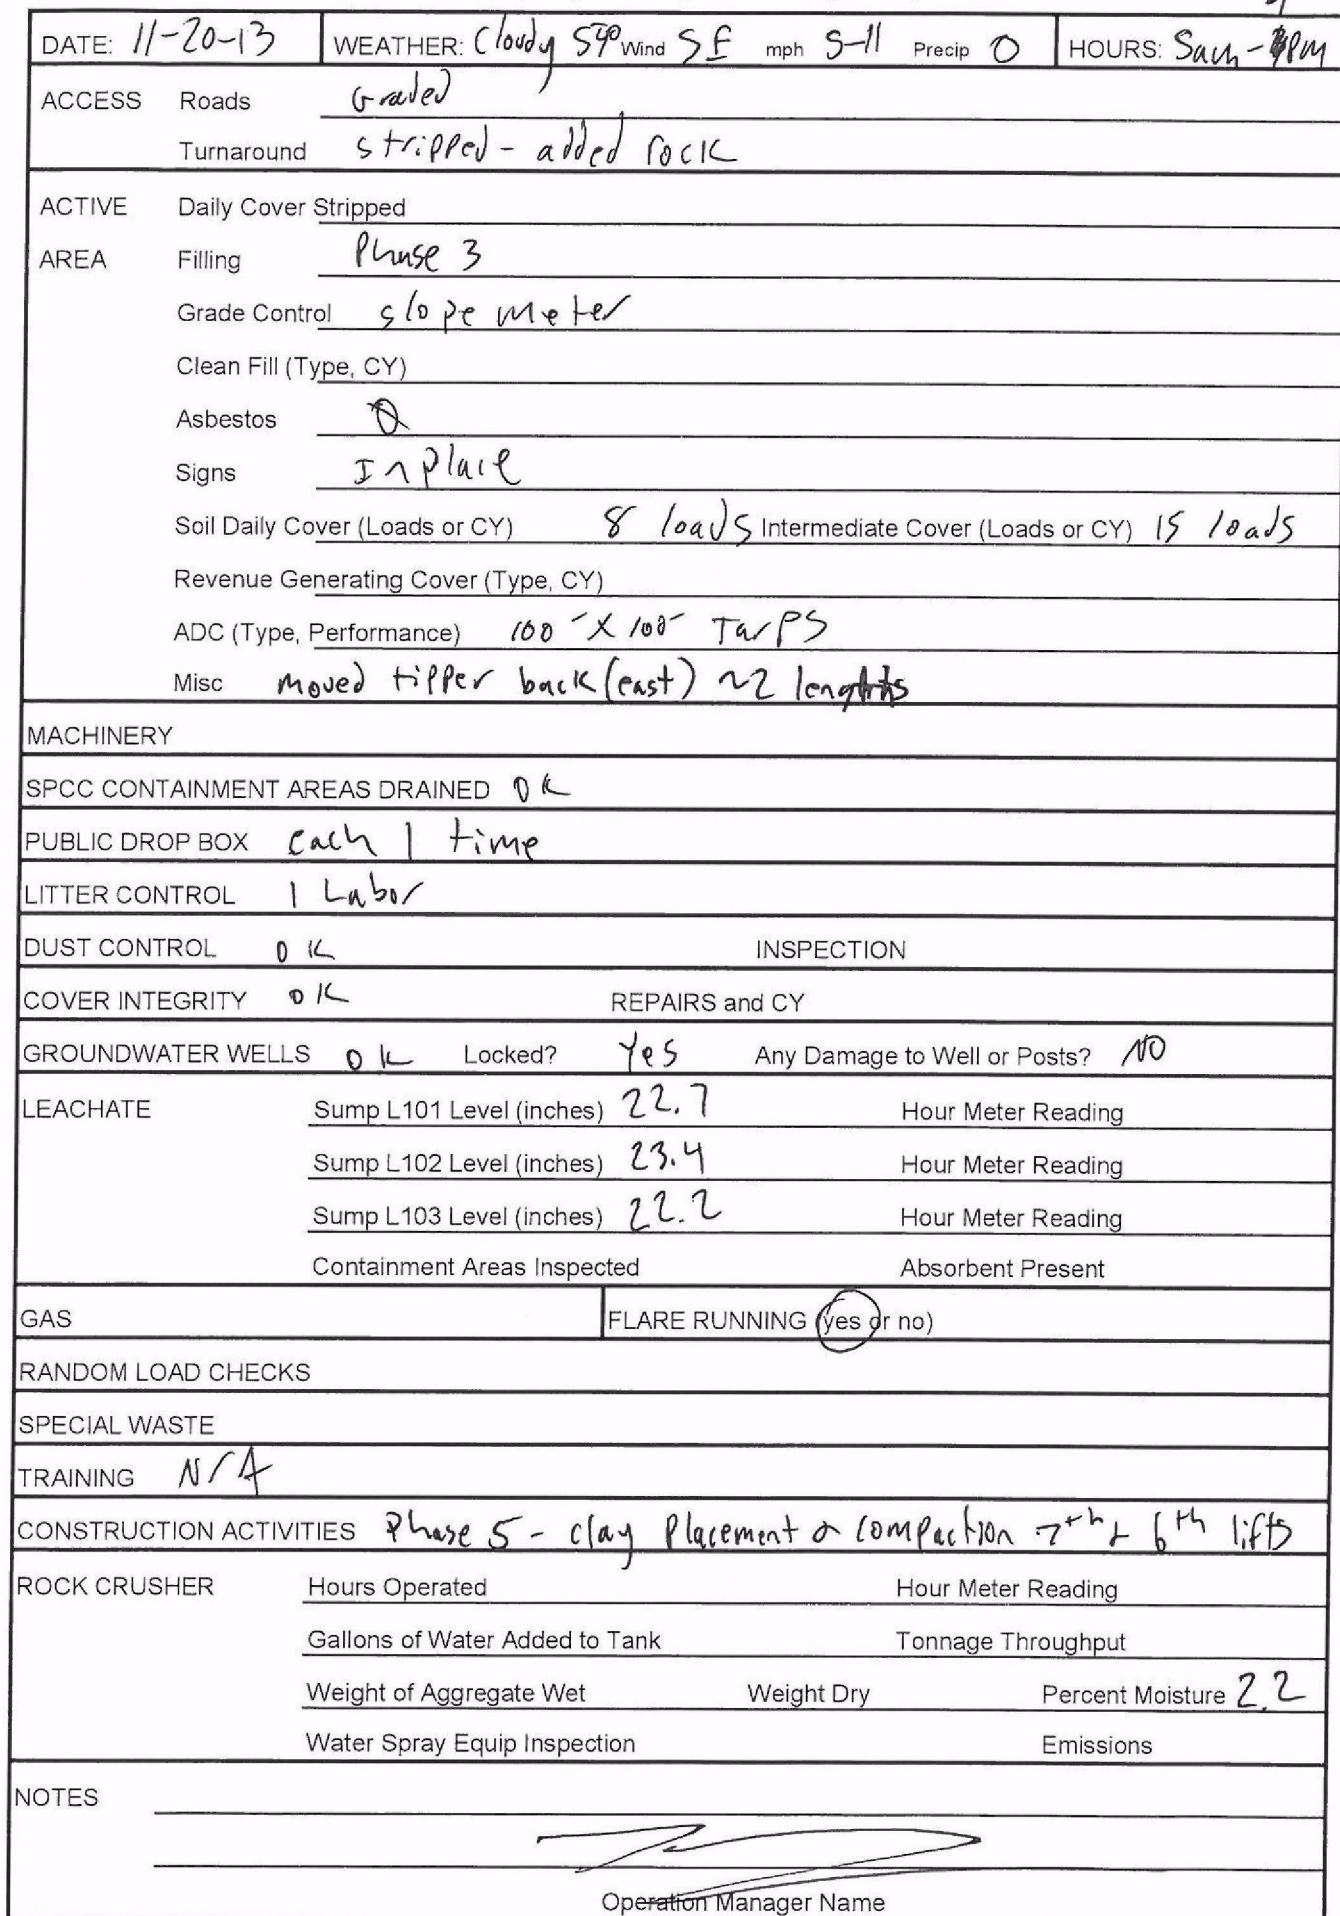 DATE: 11-20-13 WEATHER: Cloudy 54° Wind SE mph 5-11 Precip 0 HOURS: 5am - PM
ACCESS Roads Graded
Turnaround stripped - added rock
ACTIVE Daily Cover Stripped
AREA Filling Phase 3
Grade Control slope meter
Clean Fill (Type, CY)
Asbestos 0
Signs In place
Soil Daily Cover (Loads or CY) 8 loads Intermediate Cover (Loads or CY) 15 loads
Revenue Generating Cover (Type, CY)
ADC (Type, Performance) 100' X 100' Tarps
Misc moved tipper back (east) ~2 lengths
MACHINERY
SPCC CONTAINMENT AREAS DRAINED OK
PUBLIC DROP BOX each 1 time
LITTER CONTROL 1 Labor
DUST CONTROL OK INSPECTION
COVER INTEGRITY OK REPAIRS and CY
GROUNDWATER WELLS OK Locked? Yes Any Damage to Well or Posts? NO
LEACHATE Sump L101 Level (inches) 22.7 Hour Meter Reading
Sump L102 Level (inches) 23.4 Hour Meter Reading
Sump L103 Level (inches) 22.2 Hour Meter Reading
Containment Areas Inspected Absorbent Present
GAS FLARE RUNNING (yes or no)
RANDOM LOAD CHECKS
SPECIAL WASTE
TRAINING N/A
CONSTRUCTION ACTIVITIES Phase 5 - clay Placement & compaction 7th & 6th lifts
ROCK CRUSHER Hours Operated Hour Meter Reading
Gallons of Water Added to Tank Tonnage Throughput
Weight of Aggregate Wet Weight Dry Percent Moisture 2.2
Water Spray Equip Inspection Emissions
NOTES
Operation Manager Name